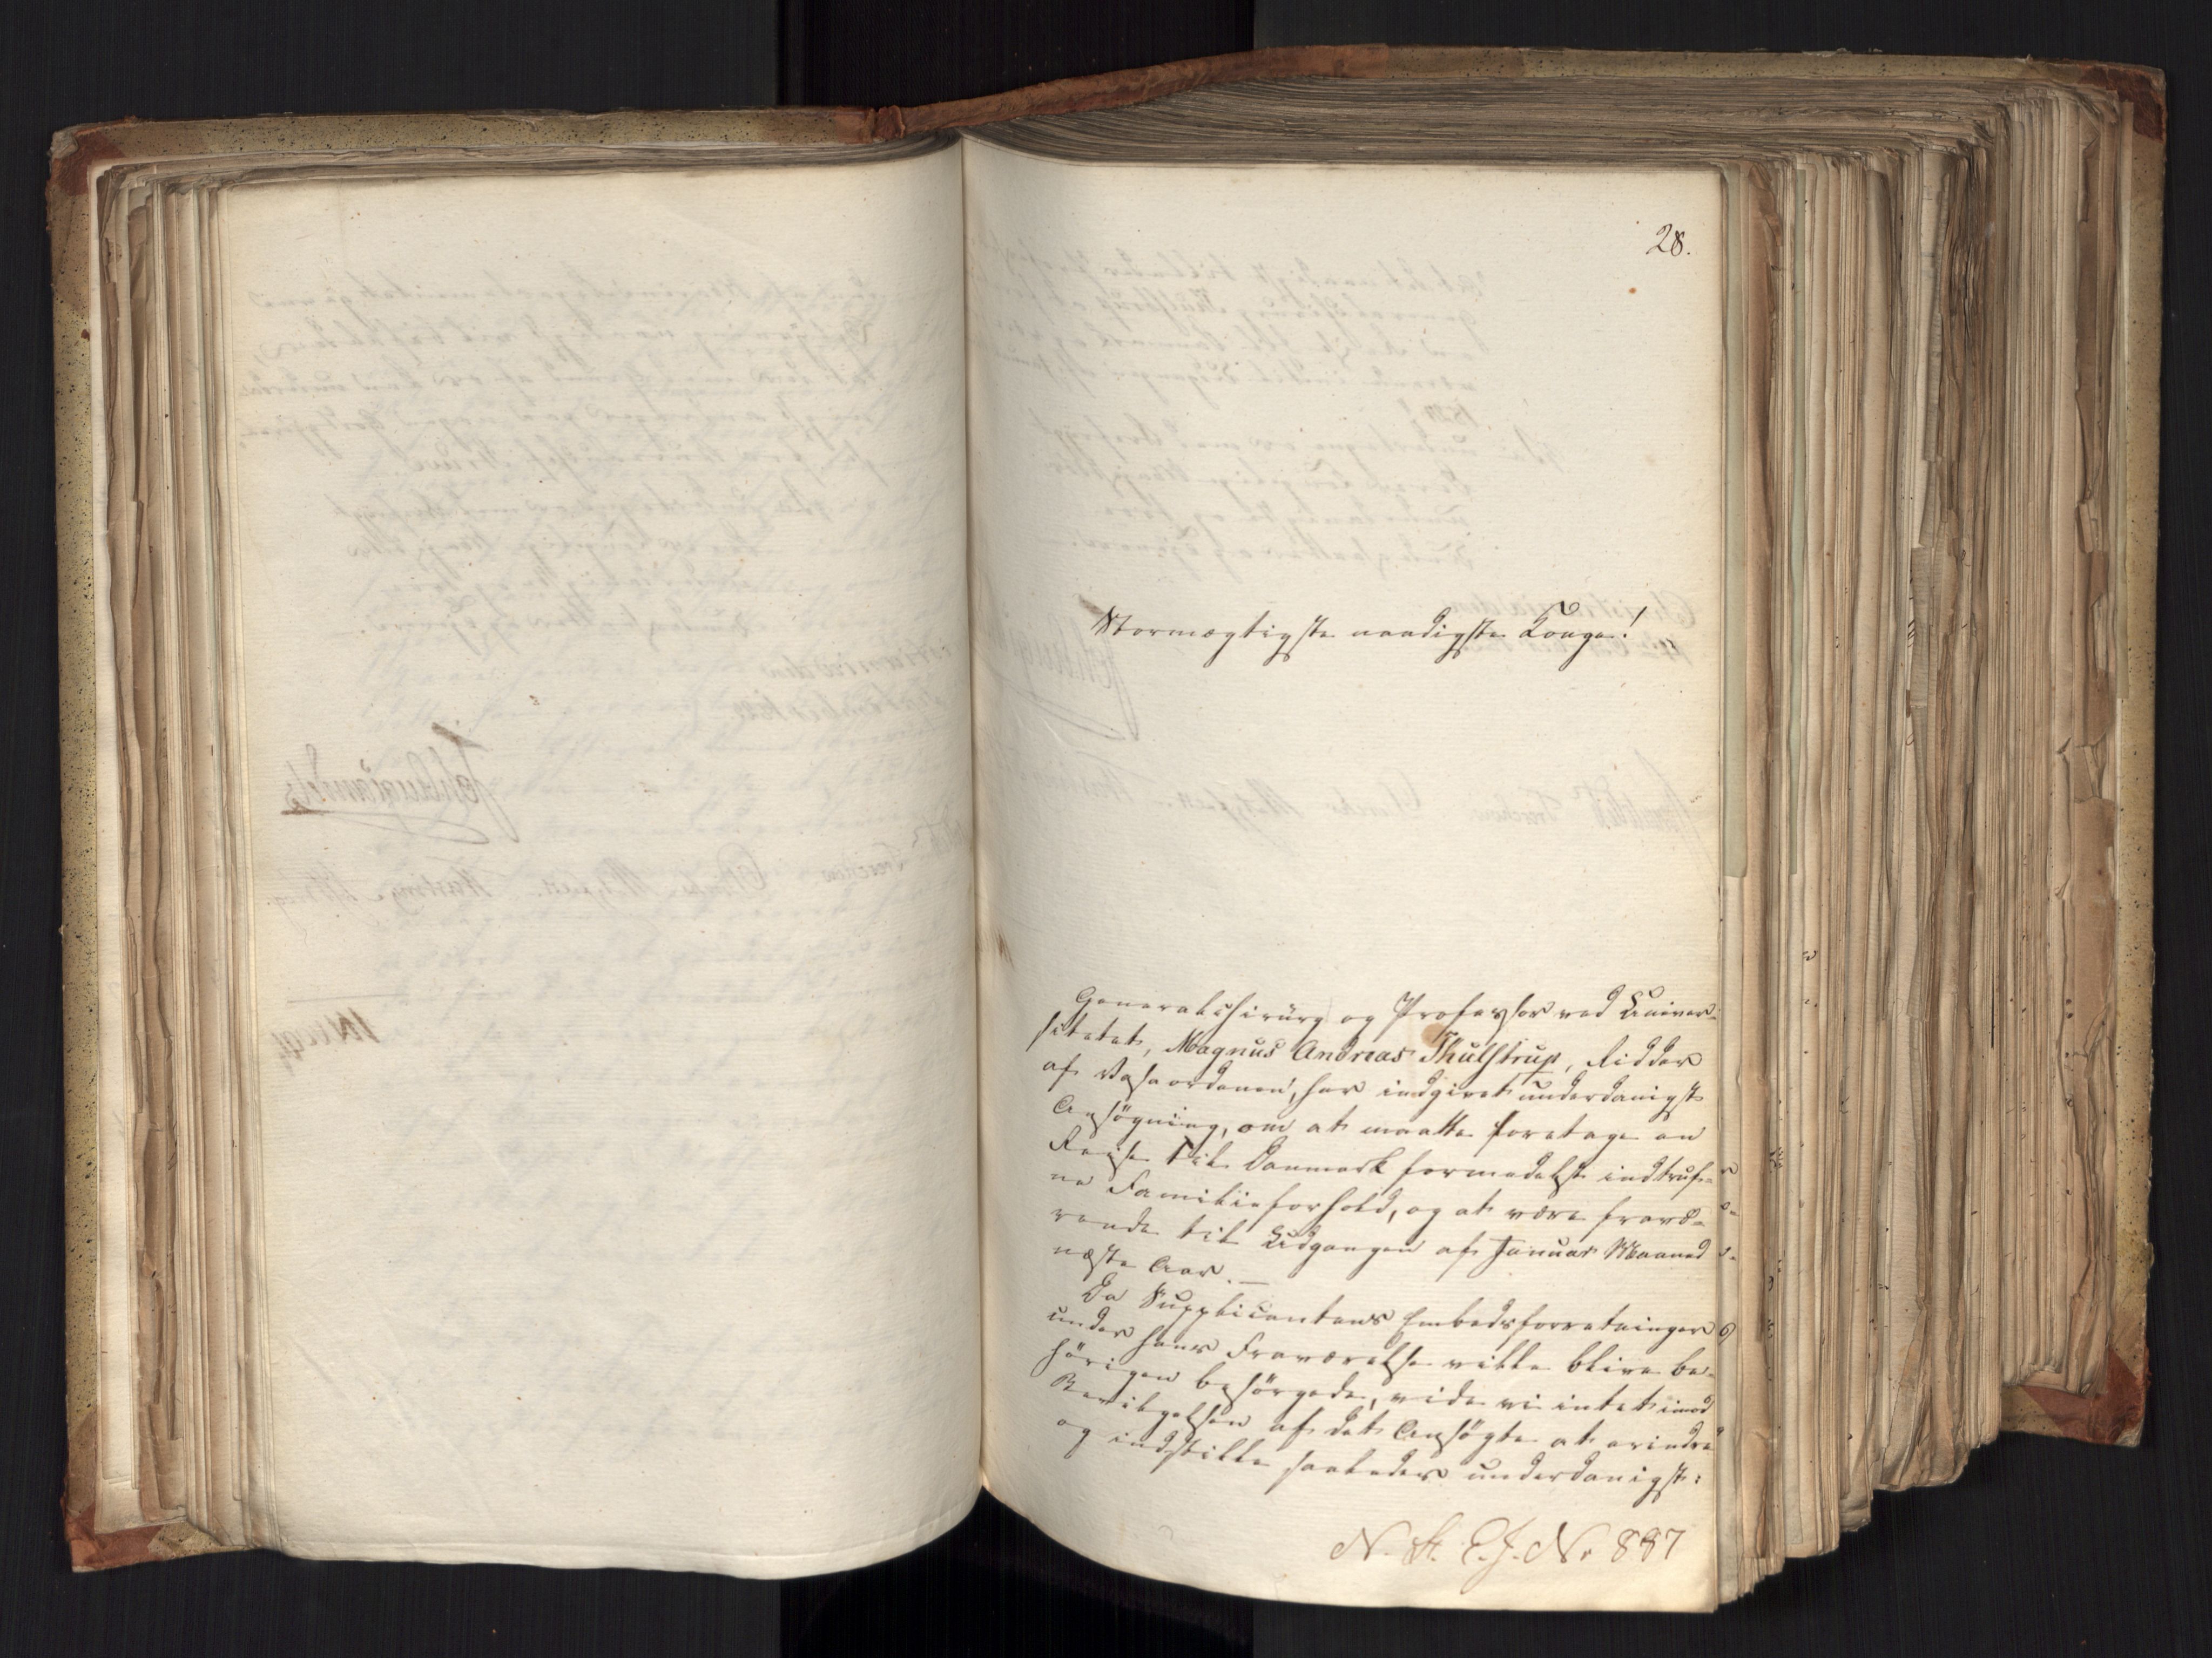 28.
Stormægtigste naadigste Konge!
Generalchirurg og Professor ved Univer-
sitetet, Magnus Andreas Thulstrup, Ridder
af Vasaordenen, har indgivet underdanigst
Ansøgning, om at maatte foretage en
Reise til Danmark formedelst indtruf-
ne Familieforhold, og at være fravæ-
rende til Udgangen af Januar Maaned
næste Aar. —
Da Supplicantens Embedsforretninger
under hans Fraværelse ville blive be-
hörigen besörgede, vide vi intet imod
Bevilgelsen af det Ansögte at erindre
og indstille saaledes underdanigst:
N. St. E. J. No 887